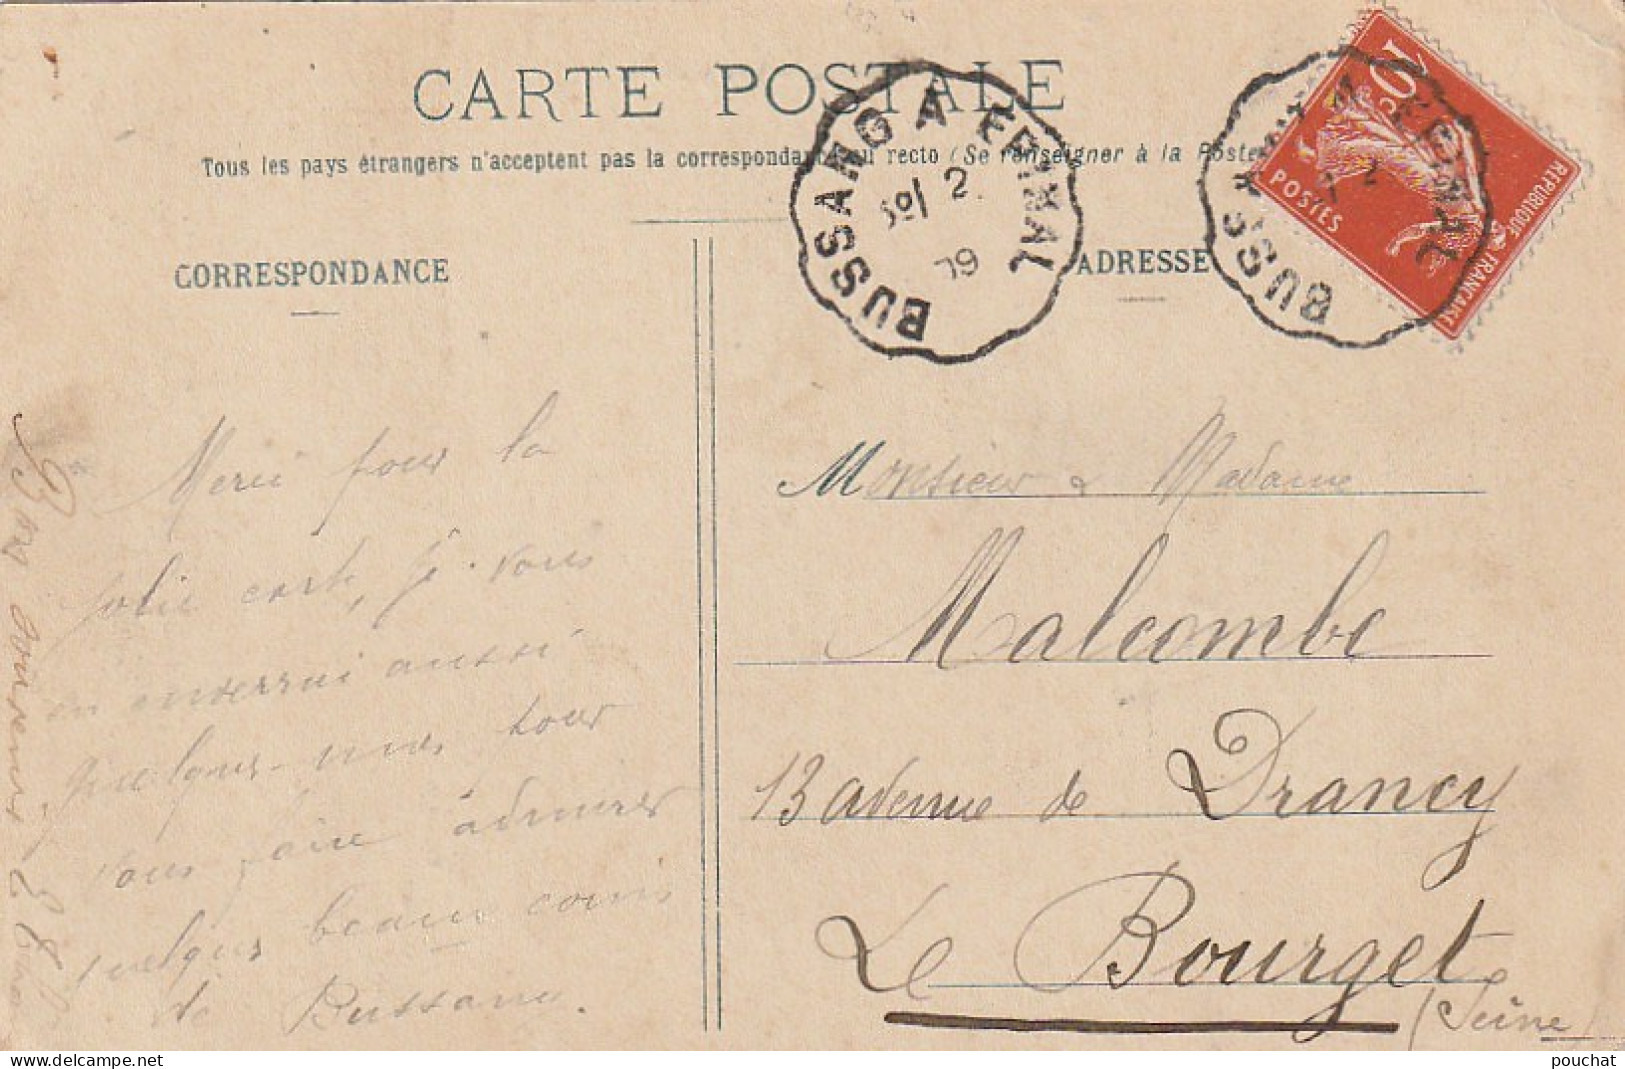 CARTE POSTALE
Tous les pays étrangers n'acceptent pas la correspondance au recto (Se renseigner à la Poste
CORRESPONDANCE
ADRESSE
BUSSANG A EPINAL
2
09
BUSSANG A EPINAL
2
10c
POSTES
REPUBLIQUE FRANCAISE
Merci pour la
jolie carte, je vous
en enverrai aussi
quelques unes pour
vous faire admirer
quelques beaux coins
de Bussang.
Bons
Monsieur & Madame
Malcombe
13 avenue de Drancy
Le Bourget
(Seine)
pouchat